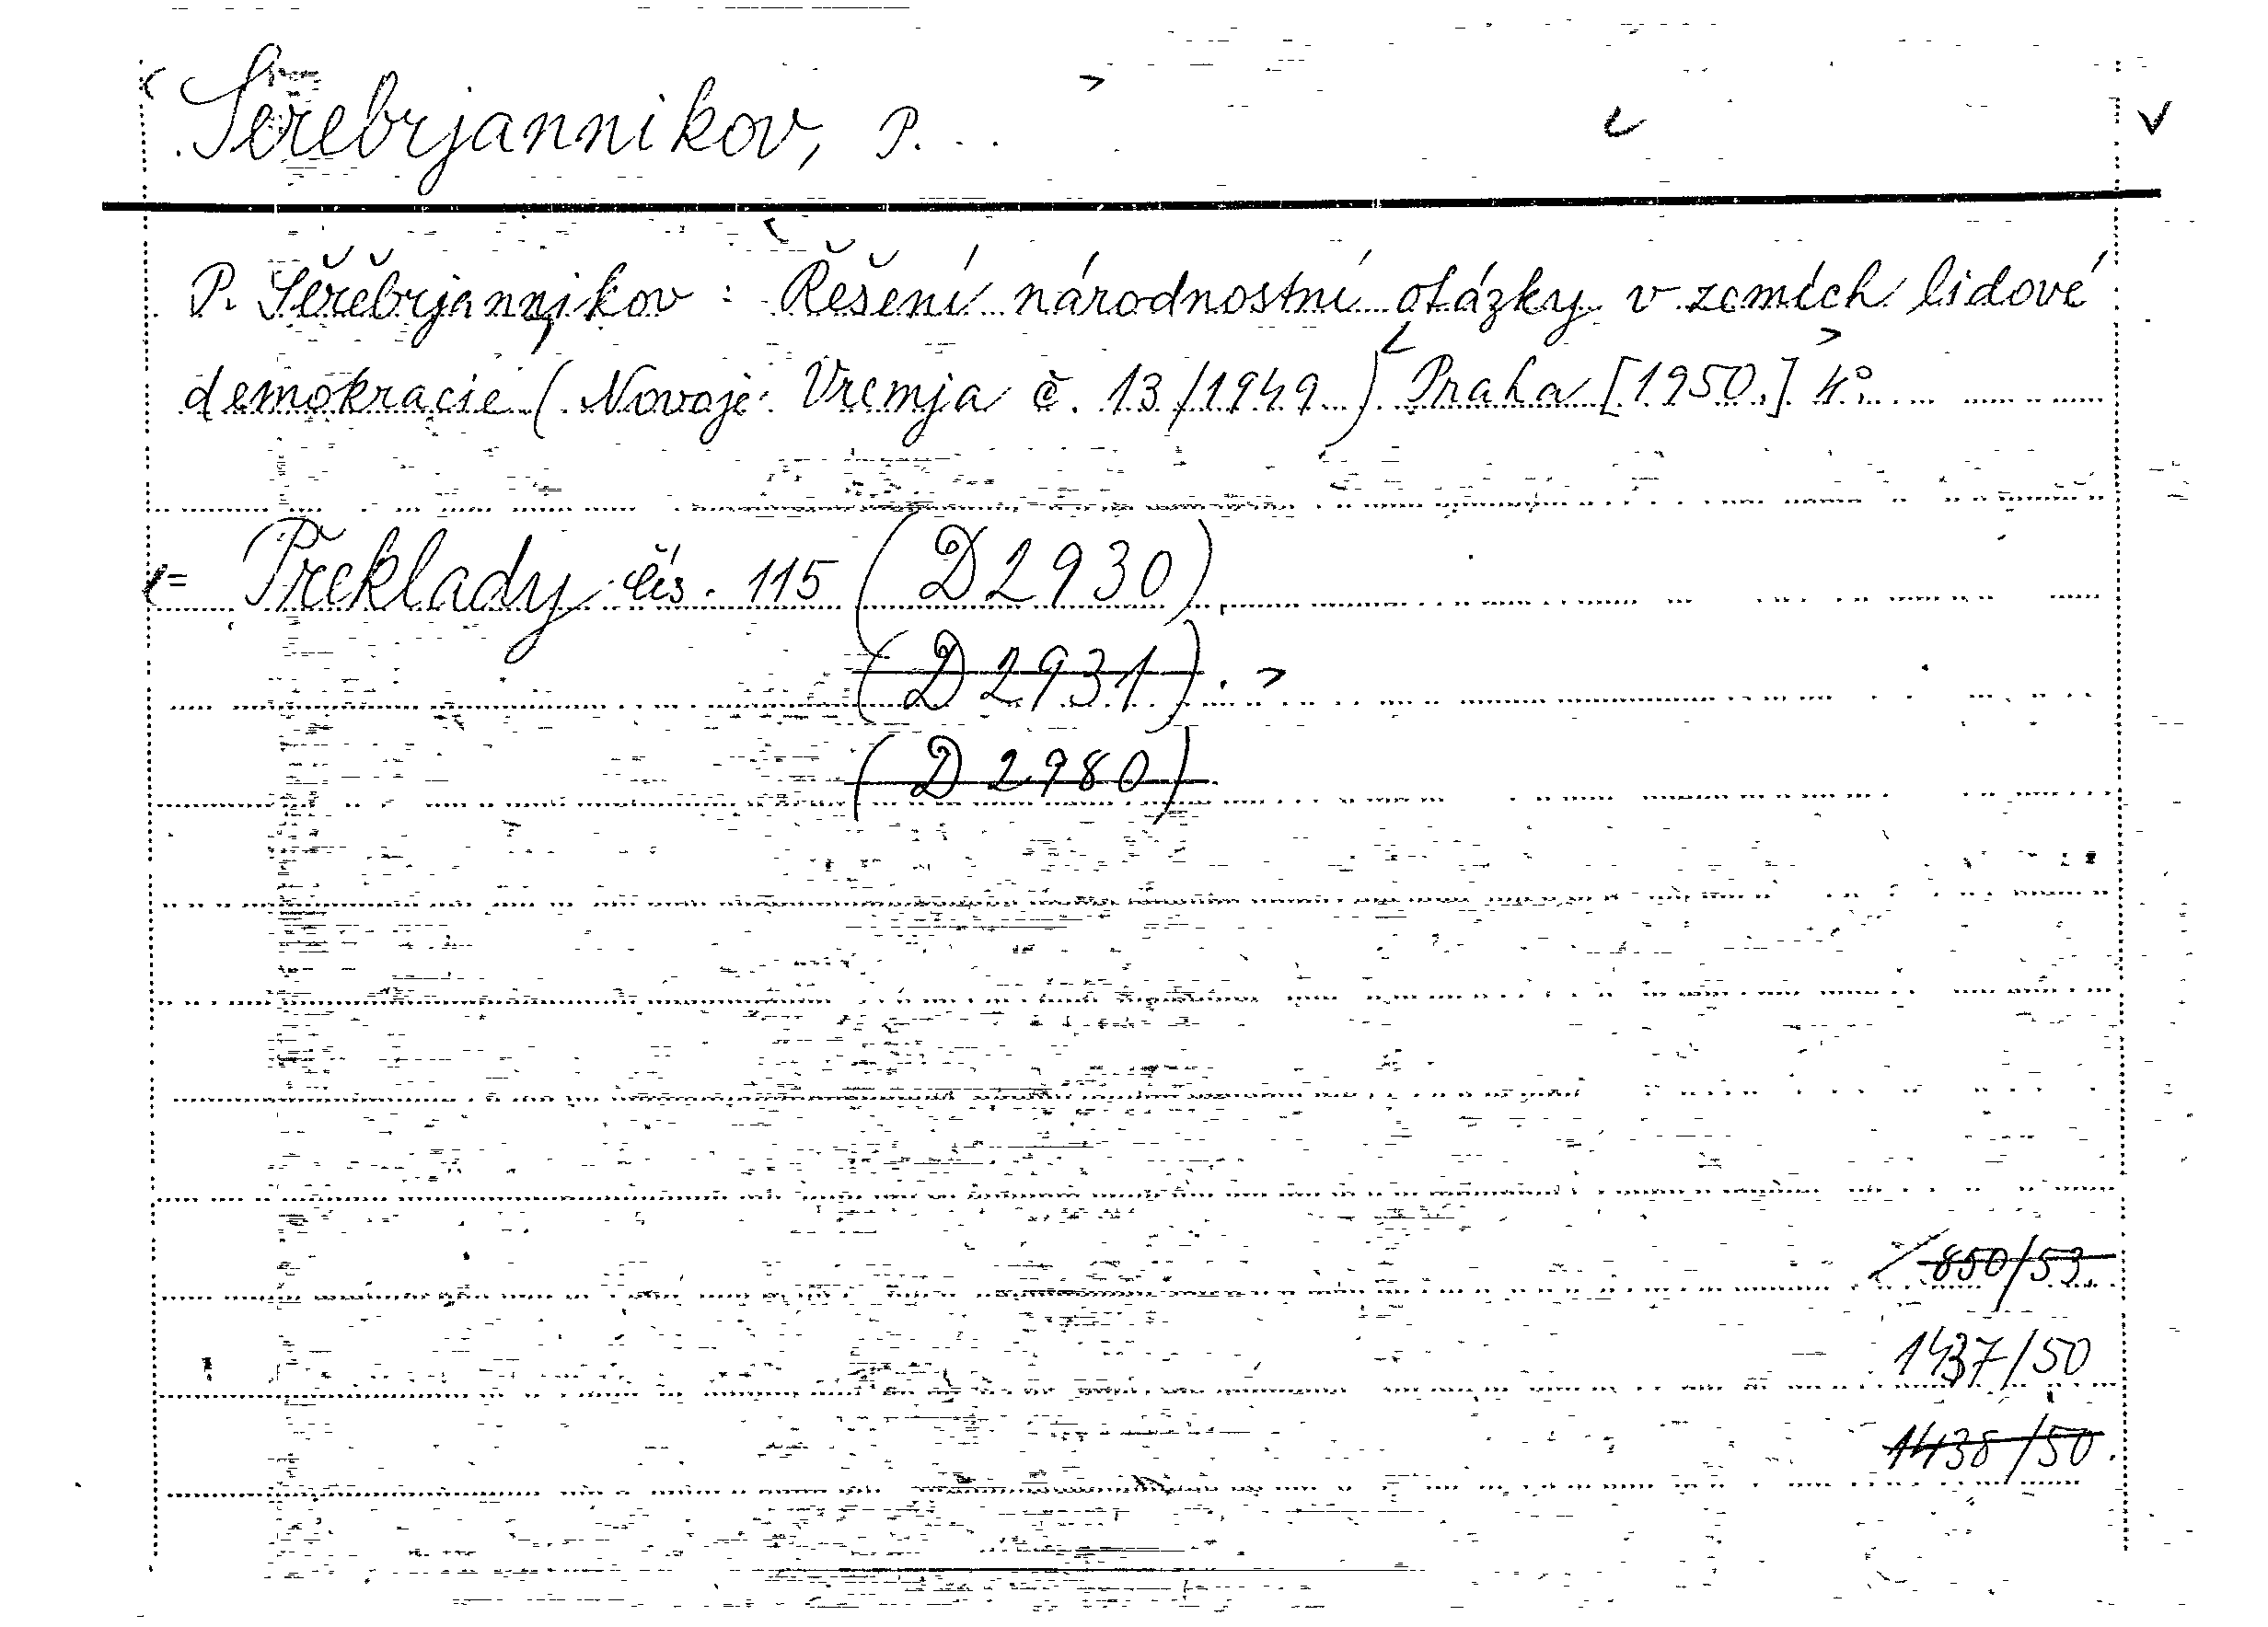 Serebrjannikov, P...
P. Seřěbrjannikov: Řešení národnostní otázky v zemích lidové
demokracie (Novoje Vremja č. 13/1949) Praha [1950.] 4°.
= Překlady čís. 115 (D2930)
(D2931).
(D2980)
850/53
1437/50
1438/50